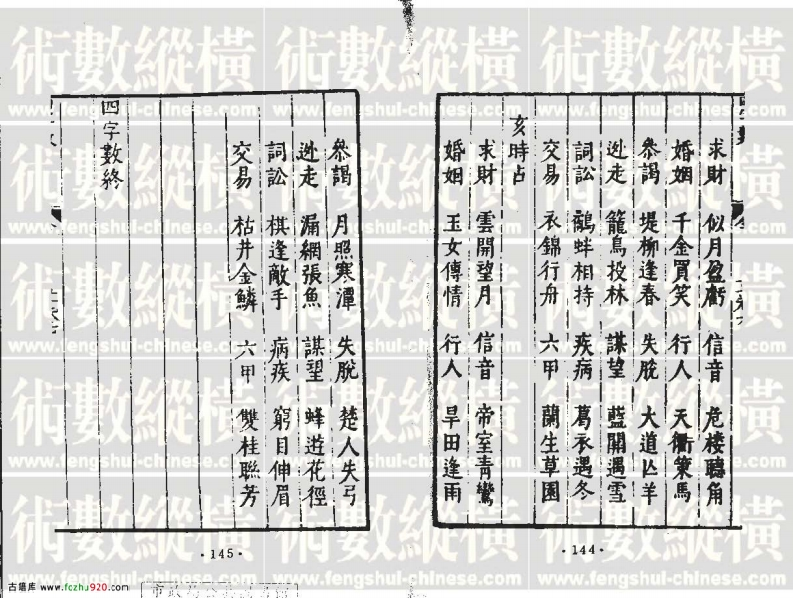 求財 似月盈虧 信音 危楼聽角
婚姻 千金買笑 行人 天衢策馬
叅謁 堤柳逢春 失脫 大道亾羊
迯走 籠鳥投林 謀望 藍關遇雪
詞訟 鷸蚌相持 疾病 葛衣遇冬
交易 衣錦行舟 六甲 蘭生草園
亥時占
求財 雲開望月 信音 帝室青鸞
婚姻 玉女傳情 行人 旱田逢雨
·144·
叅謁 月照寒潭 失脫 楚人失弓
迯走 漏網張魚 謀望 蜂遊花徑
詞訟 棋逢敵手 病疾 窮目伸眉
交易 枯井金鱗 六甲 雙桂聯芳
四字數終
·145·
術數縱橫
www.fengshui-chinese.com
古籍库 www.fczhu920.com